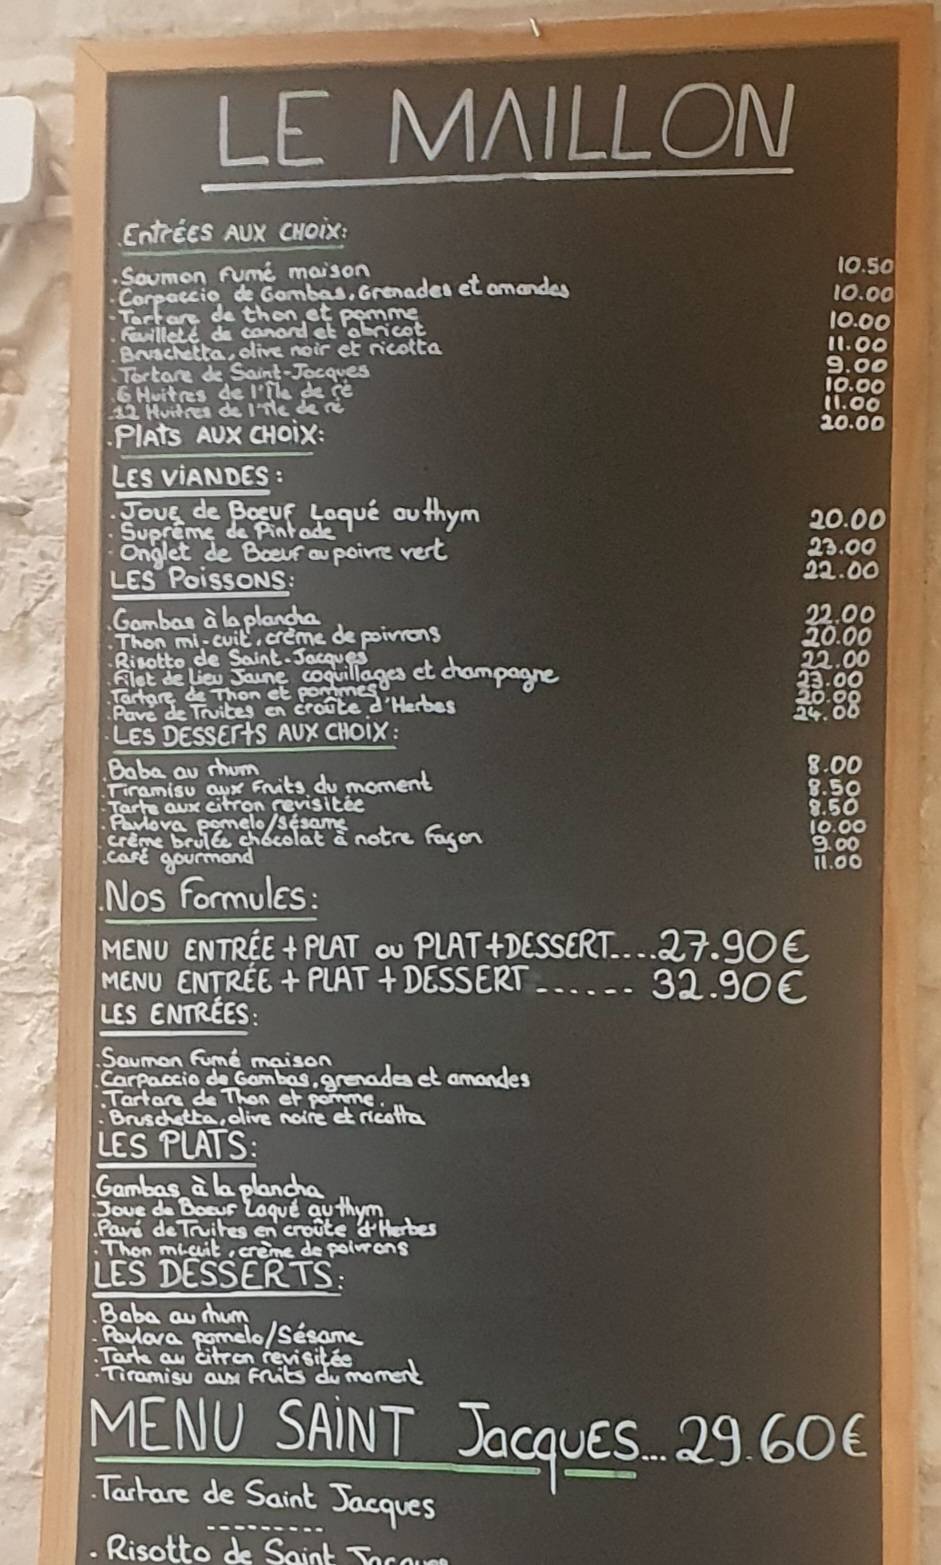 LE MAILLON
.Entrées AUX CHOIX:
.Saumon Fumé maison 10.50
.Carpaccio de Gambas, Grenades et amandes 10.00
.Tartare de thon et pomme 10.00
.Feuilleté de canard et abricot 11.00
.Bruschetta, olive noir et ricotta 9.00
.Tartare de Saint-Jacques 10.00
.6 Huitres de l'île de ré 11.00
.12 Huitres de l'île de ré 20.00
.PLATS AUX CHOIX:
LES VIANDES:
.Joue de Boeuf Laqué au thym 20.00
.Suprême de Pintade 23.00
.Onglet de Boeuf au poivre vert 22.00
LES POISSONS:
.Gambas à la plancha 22.00
.Thon mi-cuit, crème de poivrons 20.00
.Risotto de Saint-Jacques 22.00
.Filet de Lieu Jaune coquillages et champagne 23.00
.Tartare de Thon et pommes 20.00
.Pavé de Truites en croûte d'Herbes 24.00
.LES DESSERTS AUX CHOIX:
.Baba au rhum 8.00
.Tiramisu aux Fruits du moment 8.50
.Tarte aux citron revisitée 8.50
.Pavlova pomelo/sésame 10.00
.crème brulée chocolat à notre façon 9.00
.café gourmand 11.00
.Nos Formules:
MENU ENTRÉE + PLAT OU PLAT+DESSERT....27.90€
MENU ENTRÉE + PLAT + DESSERT ...... 32.90€
LES ENTRÉES:
.Saumon Fumé maison
.Carpaccio de Gambas, grenades et amandes
.Tartare de Thon et pomme.
.Bruschetta, olive noire et ricotta
LES PLATS:
.Gambas à la plancha
.Joue de Boeuf Laqué au thym
.Pavé de Truites en croûte d'Herbes
.Thon mi-cuit, crème de poivrons
LES DESSERTS:
.Baba au rhum
.Pavlova pomelo/Sésame
.Tarte au citron revisitée
.Tiramisu aux Fruits du moment
MENU SAINT Jacques...29.60€
.Tartare de Saint Jacques
---------
.Risotto de Saint Jacques